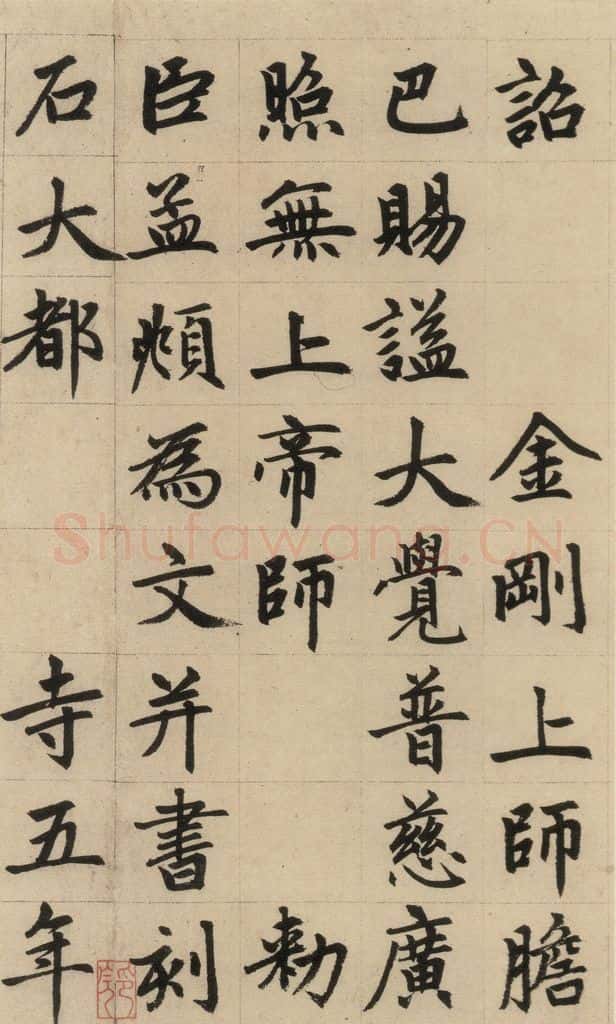 詔金剛上師膽
巴賜謚大覺普慈廣
照無上帝師勅
臣孟頫為文并書刻
石大都寺五年
Shufawang.CN